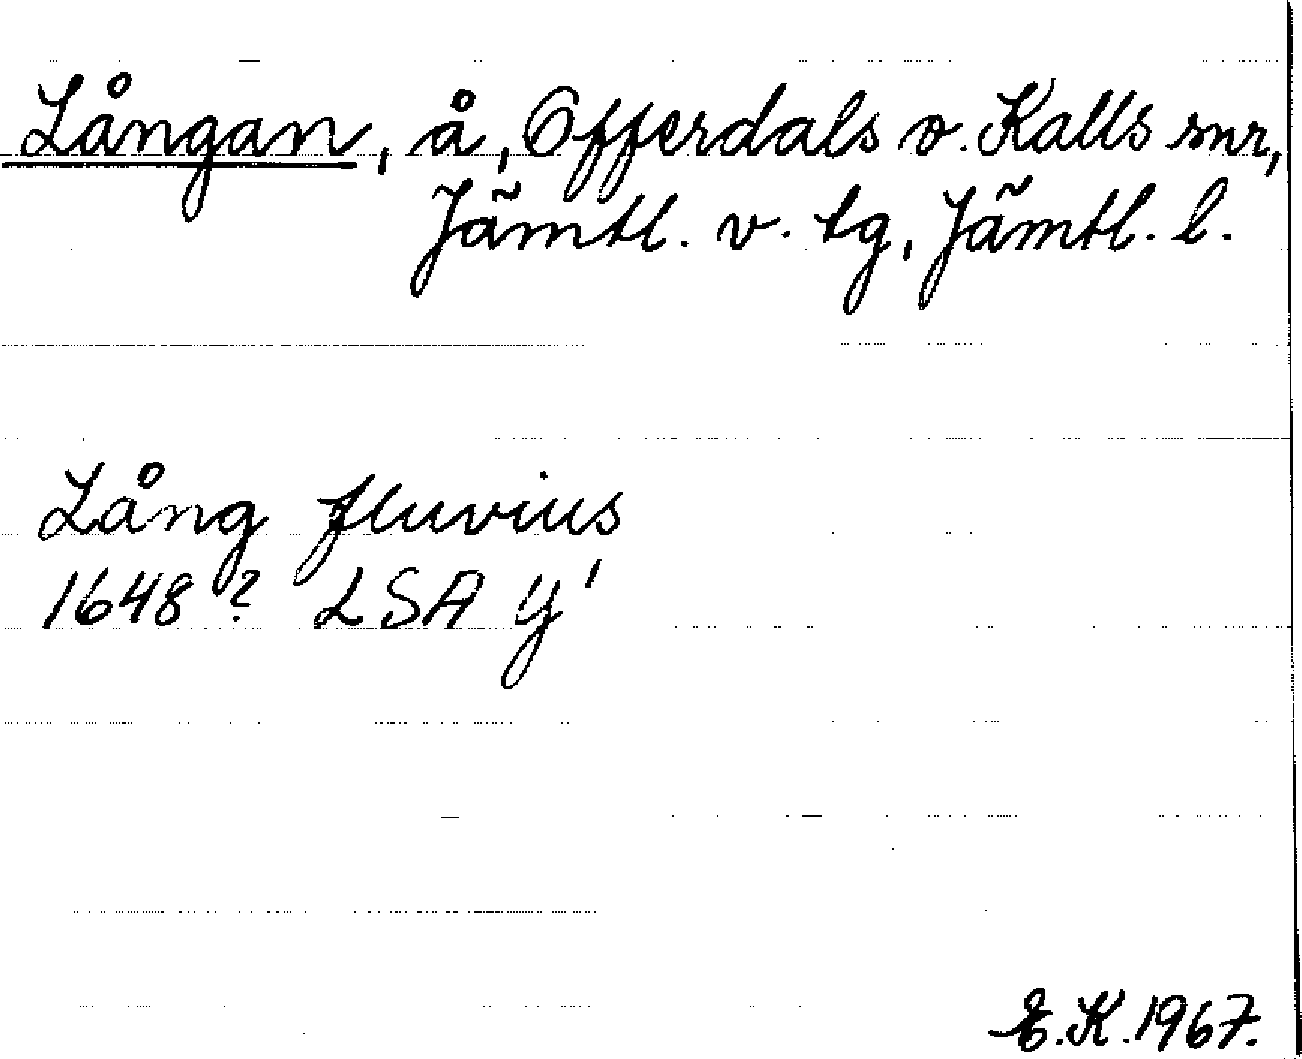 Långan, å, Offerdals o. Kalls snr,
Jämtl. v. tg, Jämtl. l.
Lång fluvius
1648? LSA Y1
E.K. 1967.